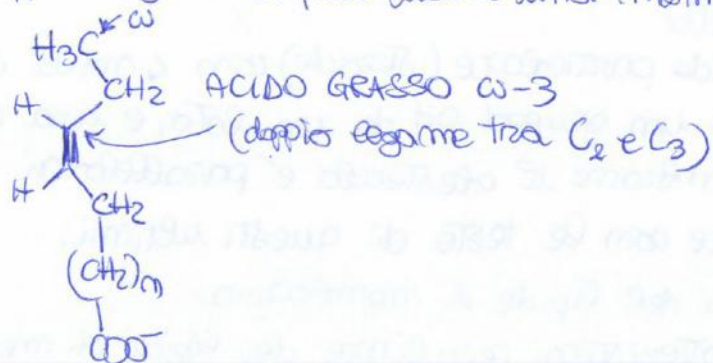 ω
H3C
CH2 ACIDO GRASSO ω-3
H
(doppio legame tra C2 e C3)
H
CH2
(CH2)n
COO-